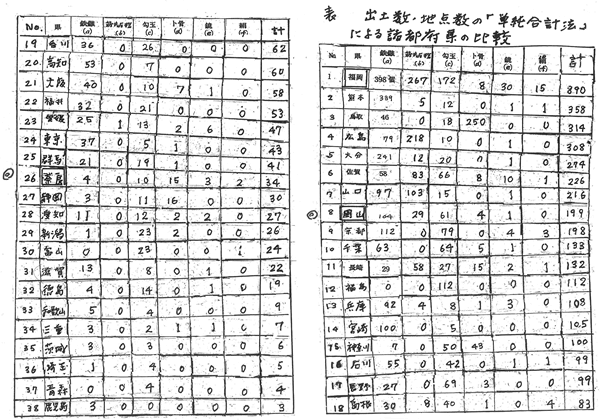 表 出土数・地点数の「単純合計法」
による諸都府県の比較
No. 県 勾玉(c) 卜骨(d) 鏡(e) 絹(f) 合計
1 福岡 398個 267 172 8 30 15 890
2 熊本 339 5 12 0 1 1 358
3 鳥取 46 0 18 250 0 0 314
4 広島 79 218 10 0 1 0 308
5 大分 241 12 20 0 1 0 274
6 佐賀 58 83 66 8 10 1 226
7 山口 97 103 15 0 1 0 216
8 岡山 104 29 61 4 1 0 199
9 京都 112 0 79 0 4 3 198
10 千葉 63 0 64 5 1 0 133
11 長崎 29 58 27 15 2 1 132
12 福島 0 0 112 0 0 0 112
13 兵庫 92 4 8 1 3 0 108
14 宮崎 100 0 5 0 0 0 105
15 神奈川 7 0 50 43 0 0 100
16 石川 55 0 42 0 1 1 99
17 長野 27 0 69 3 0 0 99
18 島根 30 8 40 1 0 4 83
No. 県 勾玉(c) 卜骨(d) 鏡(e) 絹(f) 合計
19 香川 36 0 26 0 0 0 62
20 高知 53 0 7 0 0 0 60
21 大阪 40 0 10 7 1 0 58
22 福井 32 0 21 0 0 0 53
23 愛媛 25 1 13 2 6 0 47
24 東京 37 0 5 1 0 0 43
25 群馬 21 0 19 1 0 0 41
26 奈良 4 0 10 15 3 2 34
27 静岡 3 0 11 16 0 0 30
28 愛知 11 0 12 2 2 0 27
29 新潟 1 0 23 2 0 0 26
30 富山 0 0 23 0 0 1 24
31 滋賀 13 0 8 0 1 0 22
32 徳島 4 0 14 0 1 0 19
33 和歌山 5 0 4 0 0 0 9
34 三重 3 0 2 1 1 0 7
35 茨城 3 0 3 0 0 0 6
36 埼玉 1 0 4 0 0 0 5
37 青森 0 0 4 0 0 0 4
38 鹿児島 3 0 0 0 0 0 3